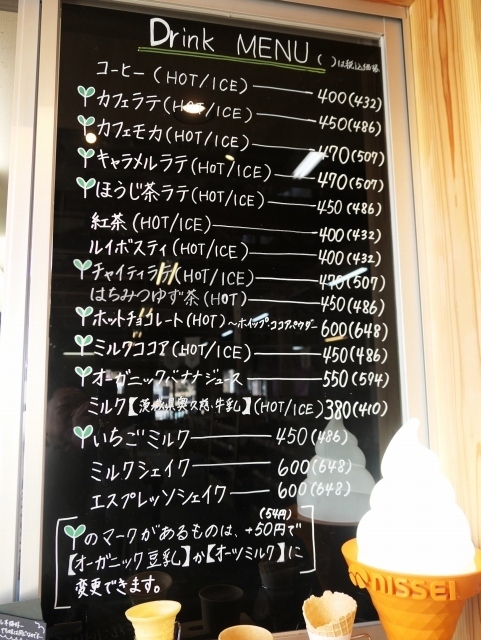 Drink MENU ( )は税込価格
コーヒー(HOT/ICE) 400(432)
カフェラテ(HOT/ICE) 450(486)
カフェモカ(HOT/ICE) 470(507)
キャラメルラテ(HOT/ICE) 470(507)
ほうじ茶ラテ(HOT/ICE) 450(486)
紅茶(HOT/ICE) 400(432)
ルイボスティ(HOT/ICE) 400(432)
チャイティラテ(HOT/ICE) 470(507)
はちみつゆず茶(HOT) 450(486)
ホットチョコレート(HOT)〜ホイップ・ココアパウダー 600(648)
ミルクココア(HOT/ICE) 450(486)
オーガニックバナナジュース 550(594)
ミルク【茨城県奥久慈牛乳】(HOT/ICE) 380(410)
いちごミルク 450(486)
ミルクシェイク 600(648)
エスプレッソシェイク 600(648)
(54円)
のマークがあるものは、+50円で
【オーガニック豆乳】か【オーツミルク】に
変更できます。
NISSEI